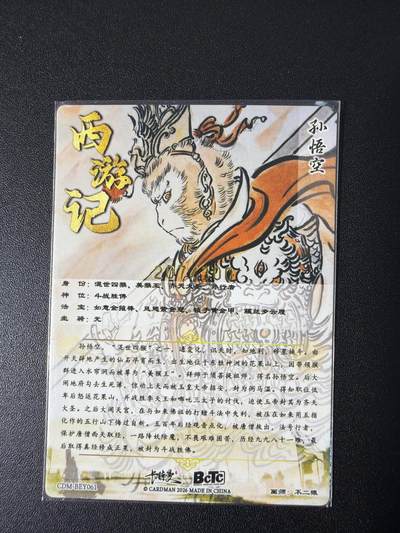 西游记
孙悟空
身 份：混世四猴、美猴王、齐天大圣、孙行者
神 位：斗战胜佛
法 宝：如意金箍棒、凤翅紫金冠、锁子黄金甲、藕丝步云履
坐 骑：无
孙悟空，“混世四猴”之一，通变化，识天时，知地利，移星换斗。由
开天辟地产生的仙石孕育而生，出生地位于东胜神洲的花果山上，因带领猴
群进入水帘洞而被尊为“美猴王”。拜师于须菩提祖师，得名孙悟空。后大
闹地府勾去生死簿，惊动上天而被玉皇大帝招安，封为弼马温。得知职位低
卑后怒返花果山。齐战托塔李天王和哪吒三太子的讨伐，迫使玉帝封其为齐天
大圣。之后大闹天宫，在与如来佛祖的打赌斗法中失利，被压在如来用五指
化作的五行山下悔过自新。五百年后经观音点化，被唐僧救出，法号行者，
保护唐僧西天取经，一路降妖除魔，不畏艰难困苦，历经九九八十一难，最
后取得真经修成正果，被封为斗战胜佛。
卡特曼 BCTC
CDM-BEY061
© CARDMAN 2026 MADE IN CHINA
画师：不二熊